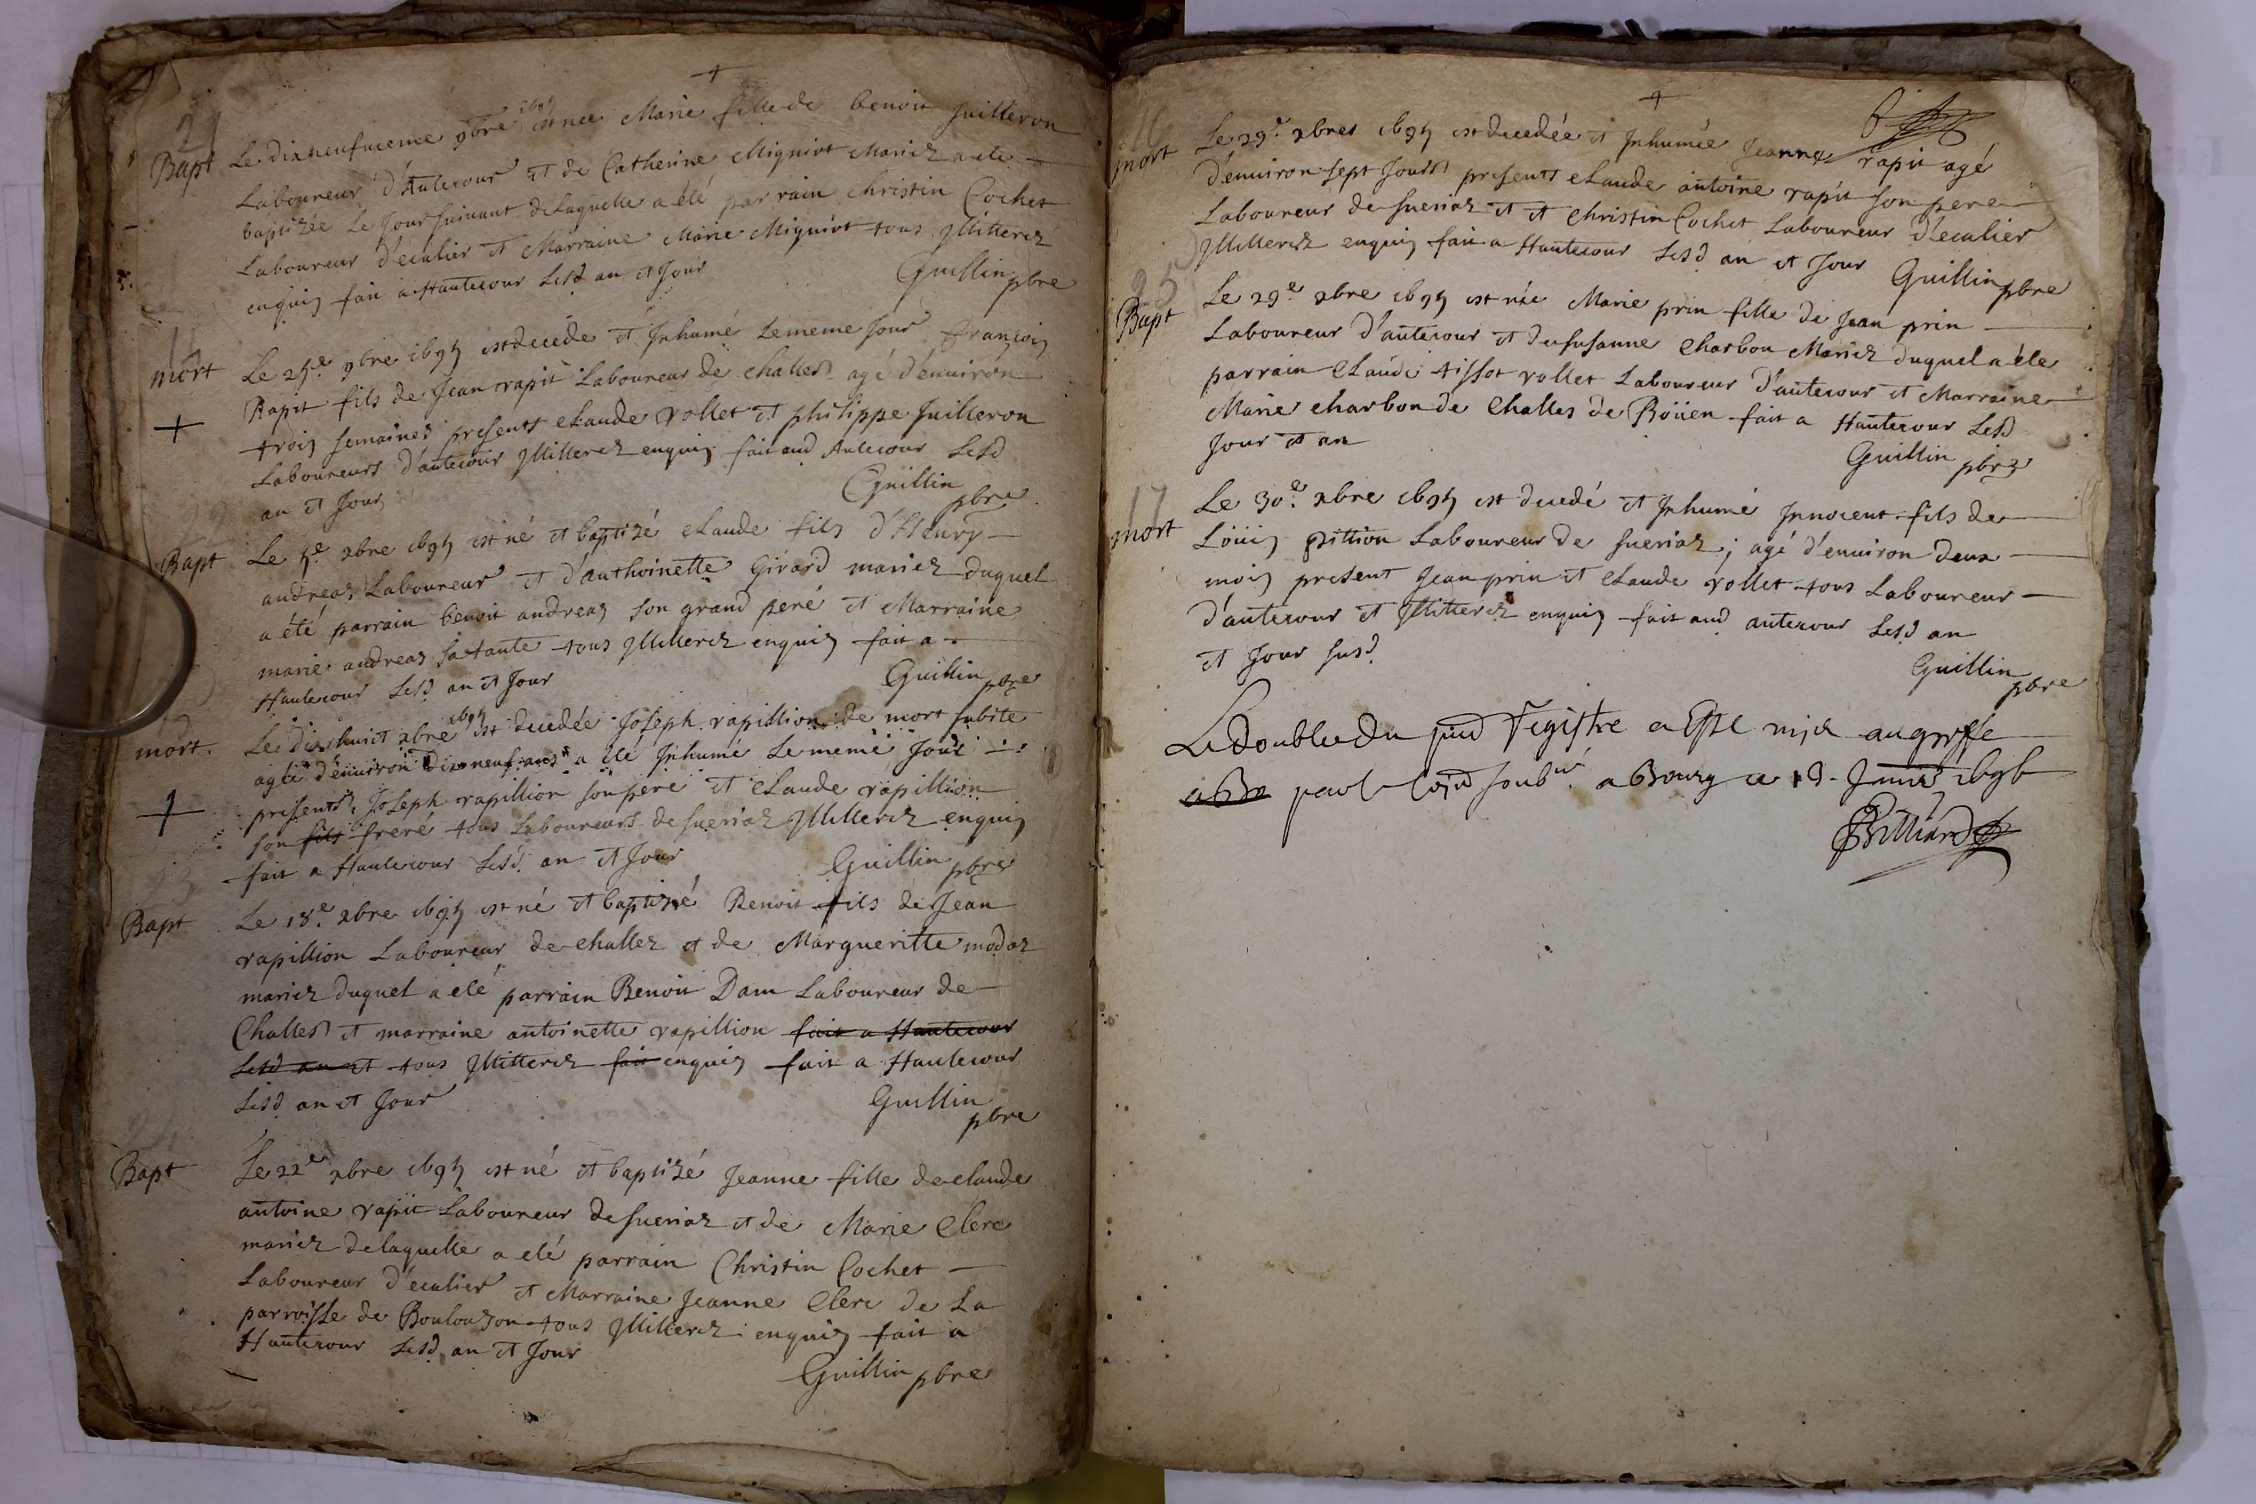 21
Bapt
Le dixneufuieme 9bre 1695 est née Marie fille de benoit Juilleron
Laboureur d'Autecour et de Catherine Migniot Mariez a ete
baptizée Le Jour suiuant de Laquelle a été parrain christin Cochet
Laboureur d'ecalier et Marraine Marie Migniot tous Jllitterez
enquis fait a Hautecour Lesd an et Jour
Guillin pbre
mort
+
Le 25e 9bre 1695 est decede et Jnhumé Le meme Jour françois
Rapit fils de Jean rapit Laboureur de challes agé d'enuiron
trois semaines presents claude vollet et philippe Juilleron
Laboureurs d'autecour Jllitterez enquis fait aud Autecour Lesd
an et Jour
Guillin
pbre
Bapt
Le 5e xbre 1695 est né et baptizé claude fils d'Henry
andreas Laboureur et d'anthoinette Girard mariez duquel
a été parrain benoit andreas son grand peré et Marraine
marie andreas sa tante tous Jllitterez enquis fait a
Hautecour Lesd an et Jour
Guillin pbre
mort.
+
Le dixhuict xbre 1695 est decedée Joseph rapillion de mort subite
agée d'enuiron dixneuf ans a été Jnhumé Le meme Jour
presents Joseph rapillion son pere et claude rapillion
son fils freré tous Laboureurs de sueriaz Jllitterez enquis
fait a Hautecour Lesd. an et Jour
Guillin pbre
Bapt
Le 18.e xbre 1695 est né et baptizé Benoit fils de Jean
rapillion Laboureur de challez et de Margueritte modaz
mariez duquel a eté parrain Benoit Dam Laboureur de
Challes et marraine antoinette rapillion fait a Hautecour
Lesd an et tous Jllitterez fait enquis fait a Hautecour
Lesd an et Jour
Guillin
pbre
Bapt
Le 22e xbre 1695 est né et baptizé Jeanne fille de claude
antoine rapit Laboureur de sueriaz et de Marie Clerc
mariez de laquelle a eté parrain Christin Cochet
Laboureur d'ecalier et Marraine Jeanne Clerc de La
parroisse de Boulouzon tous Jllitterez enquis fait a
Hautecour Lesd an et Jour
Guillin pbre
16
mort
Le 29.e xbres 1695 est decedée et Jnhumée Jeanne rapit agé
d'enuiron sept Jours presents claude antoine rapit son pere
Laboureur de sueriaz et et christin Cochet Laboureur d'ecalier
Jllitterez enquis fait a Hautecour Lesd an et Jour
Guillin pbre
25
Bapt
Le 29e xbre 1695 est née Marie prin fille de Jean prin
Laboureur d'autecour et de susanne charbon Mariez duquel a été
parrain claude tissot vollet Laboureur d'autecour et Marraine
Marie charbon de Challes de Boüen fait a Hautecour Lesd
Jour et an
Guillin pbre
17
mort
Le 30.e xbre 1695 est decedé et Jnhumé Jnnocent fils de
Loüis pittion Laboureur de sueriaz; agé d'enuiron deux
mois present Jean prin et claude vollet tous Laboureur
d'autecour et Jllitterez enquis fait aud autecour Lesd an
et Jour susd.
Guillin
pbre
Le double du pnt Registre a Esté mis au greffe
a Bo par soub a Bourg ce 13 1696
Billiard